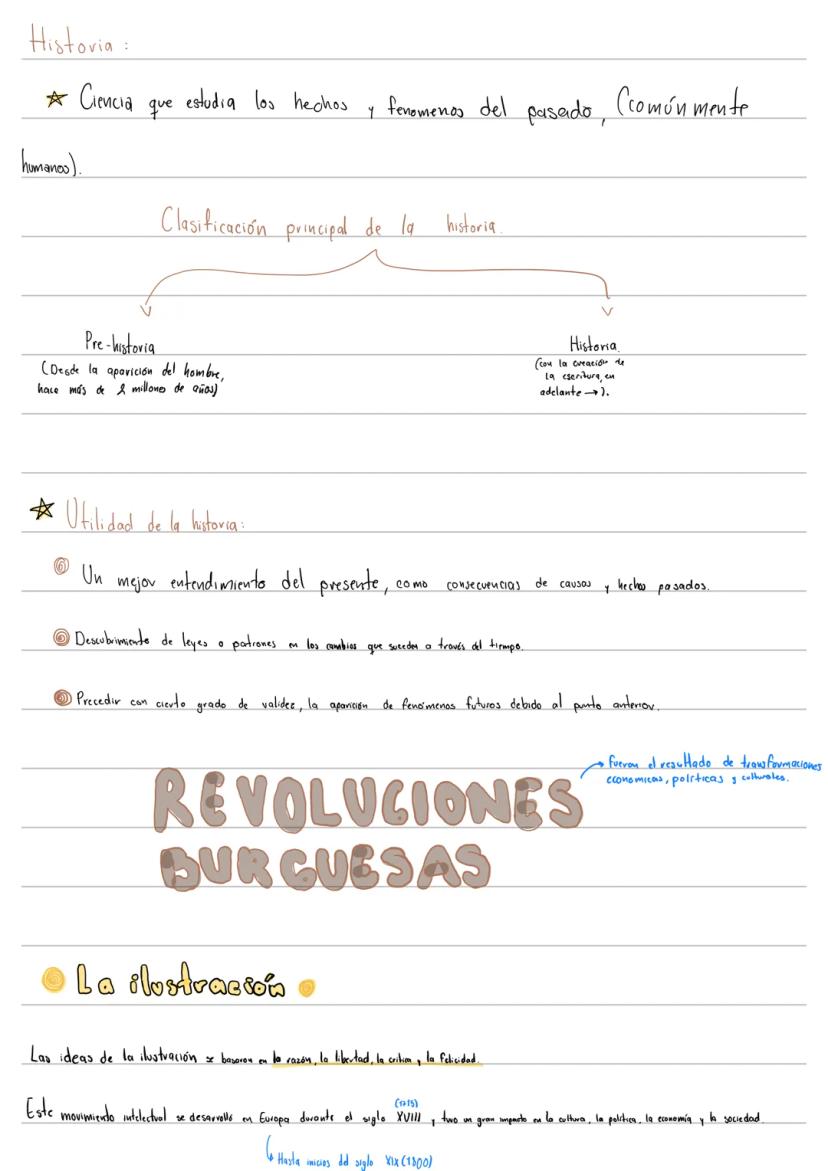 Historia :
Ciencia que estudia los hechos y fenomenos del pasado, (comúnmente
humanos).
Clasificación principal de la historia.
Pre-historia
(Desde la aparición del hombre,
hace más de 2 millones de años)
Historia.
(con la creación de
la escritura, en
adelante →).
Utilidad de la historia:
Un mejor entendimiento del presente, como consecuencias de causas y hechos pasados.
Descubrimiento de leyes o patrones en los cambios que suceden a través del tiempo.
Precedir con cierto grado de validez, la aparición de fenómenos futuros debido al punto anterior.
fueron el resultado de transformaciones
economicas, políticas y culturales.
REVOLUCIONES
BURGUESAS
La ilustración
Las ideas de la ilustración se basaron en la razón, la libertad, la crítica y la felicidad.
(1715)
Este movimiento intelectual se desarrolló en Europa durante el siglo XVIII y tuvo un gran impacto en la cultura, la política, la economía y la sociedad.
Hasta inicios del siglo XIX (1800)